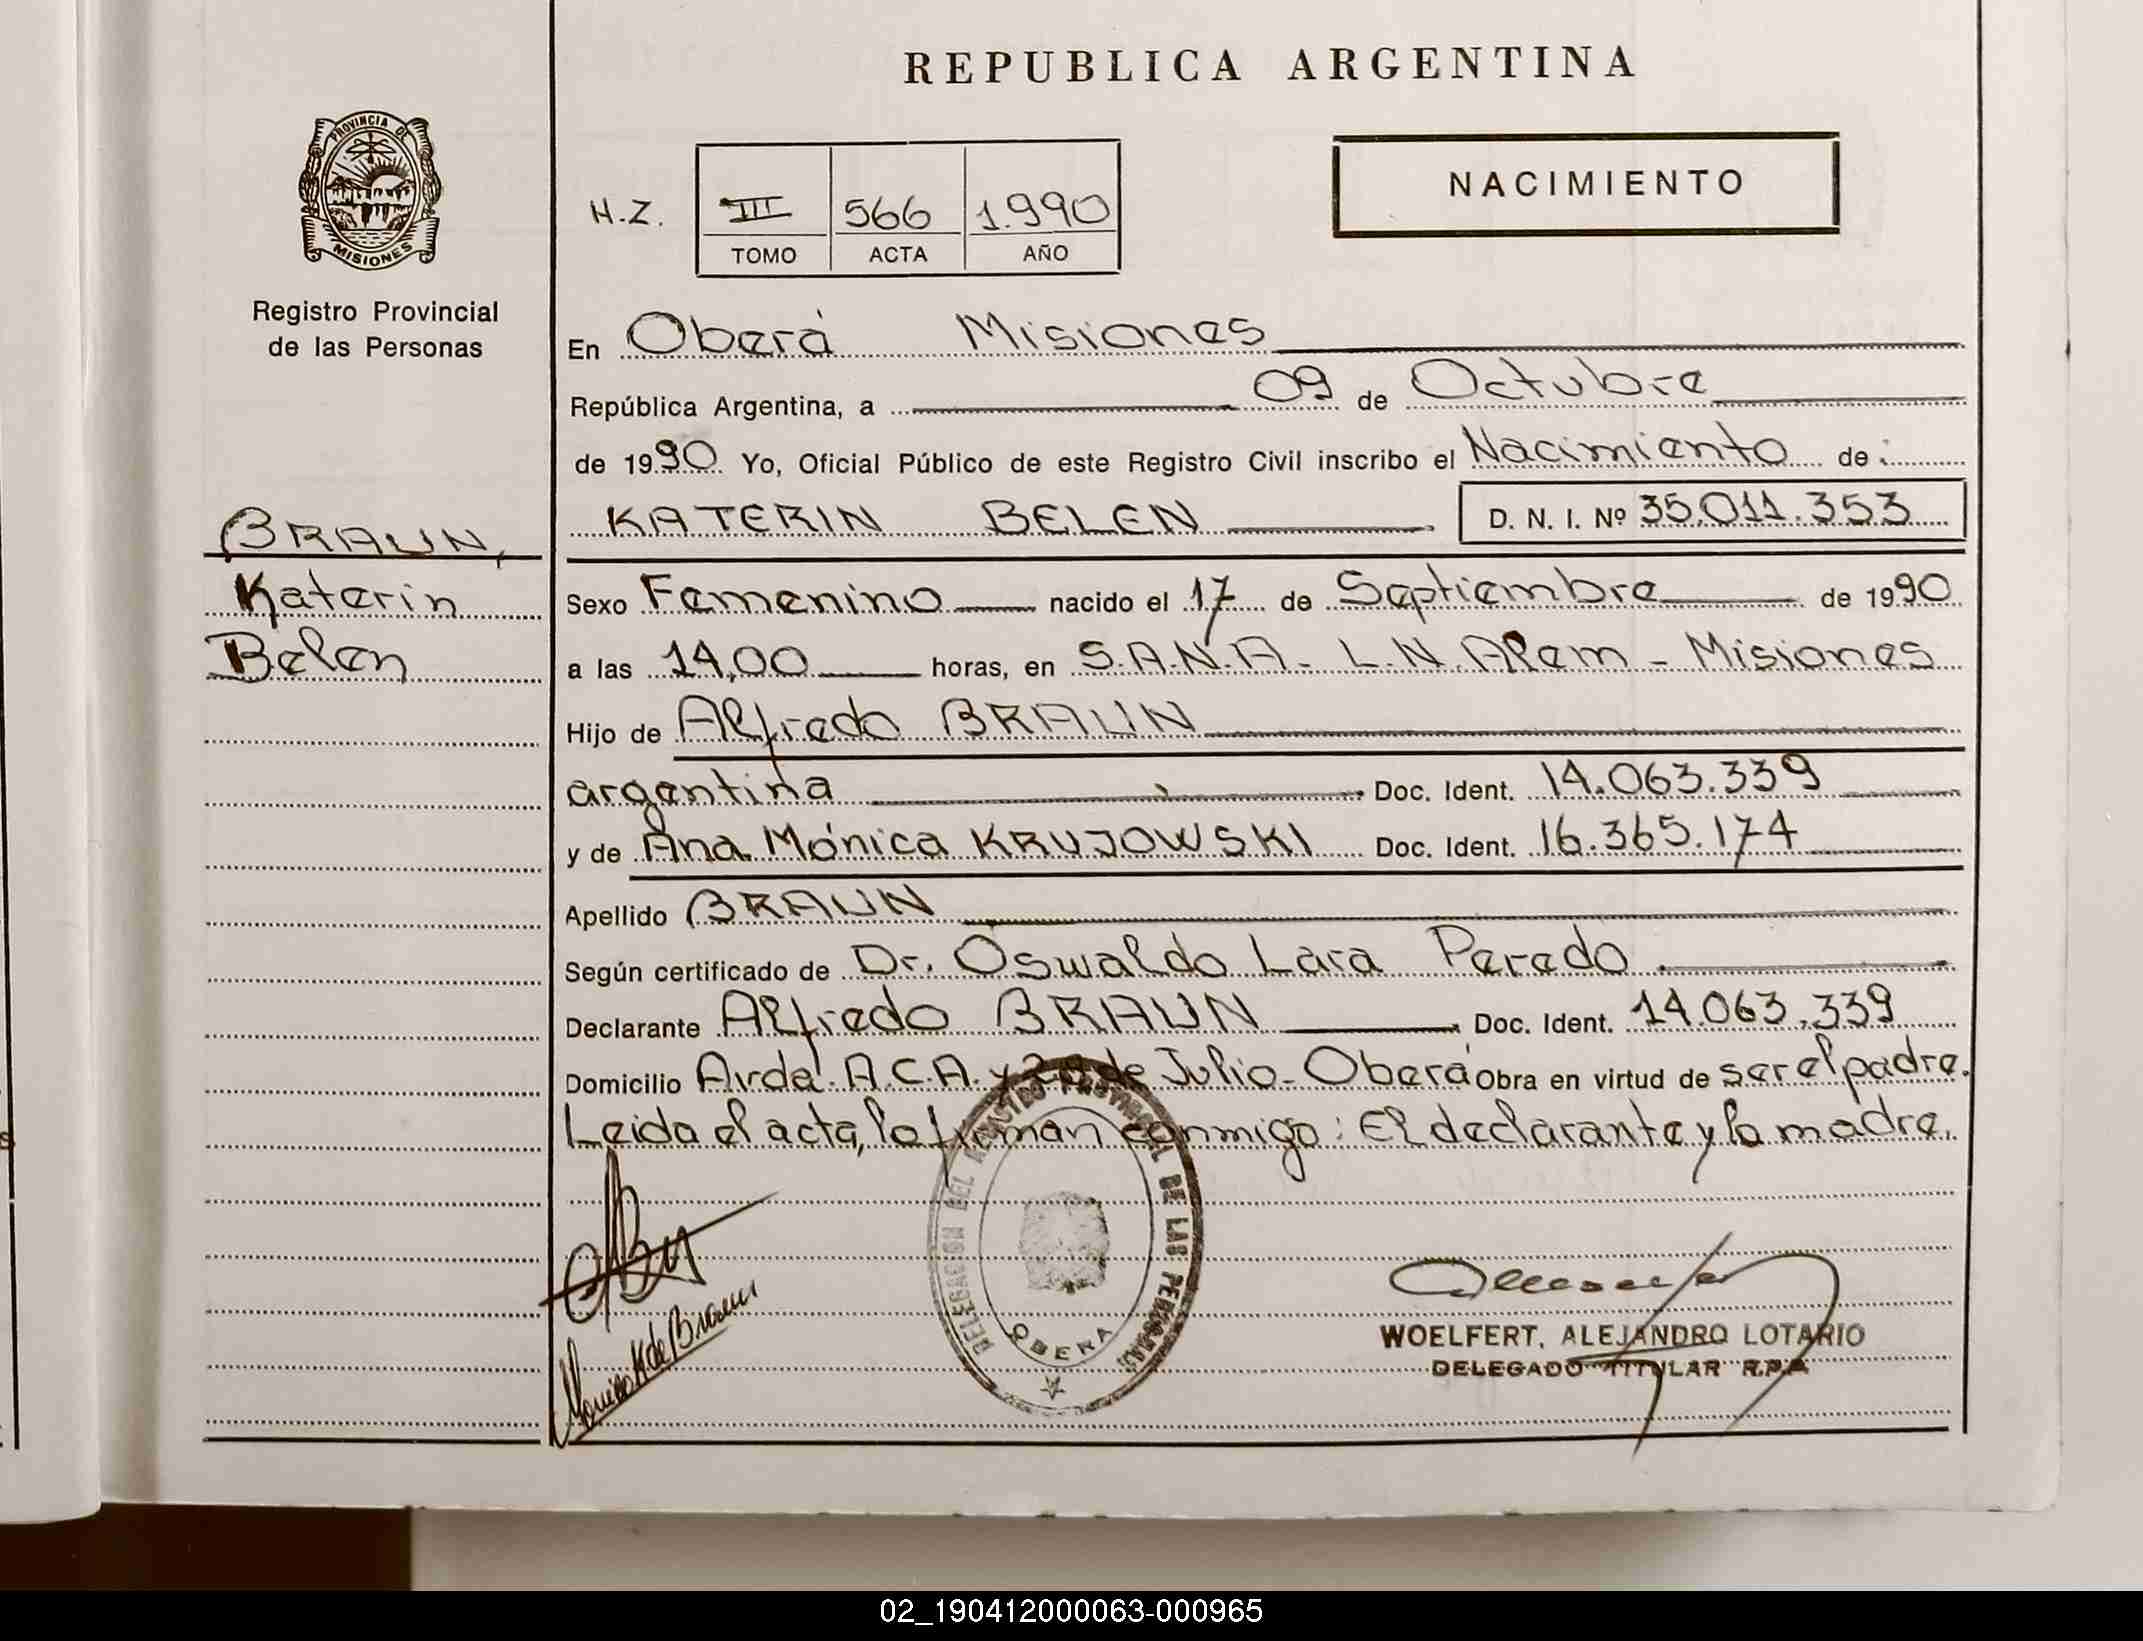 REPUBLICA ARGENTINA
PROVINCIA DE
MISIONES
Registro Provincial
de las Personas
NACIMIENTO
H.Z. III 566 1.990
TOMO ACTA AÑO
En Oberá Misiones
República Argentina, a 09 de Octubre
de 1990 Yo, Oficial Público de este Registro Civil inscribo el Nacimiento de:
KATERIN BELEN D. N. I. Nº 35.011.353
BRAUN,
Katerin
Belen
Sexo Femenino nacido el 17 de Septiembre de 1990
a las 14,00 horas, en S.A.N.A. L.N.Alem - Misiones
Hijo de Alfredo BRAUN
argentina Doc. Ident. 14.063.339
y de Ana Mónica KRUJOWSKI Doc. Ident. 16.365.174
Apellido BRAUN
Según certificado de Dr. Oswaldo Lara Peredo
Declarante Alfredo BRAUN Doc. Ident. 14.063.339
Domicilio Avda. A.C.A. y de Julio - Oberá Obra en virtud de ser el padre.
Leida el acta, la firman conmigo: El declarante y la madre.
DELEGACION DEL REGISTRO PROVINCIAL DE LAS PERSONAS
OBERA
Monica K de Braun
WOELFERT, ALEJANDRO LOTARIO
DELEGADO TITULAR R.P.P.
02_190412000063-000965